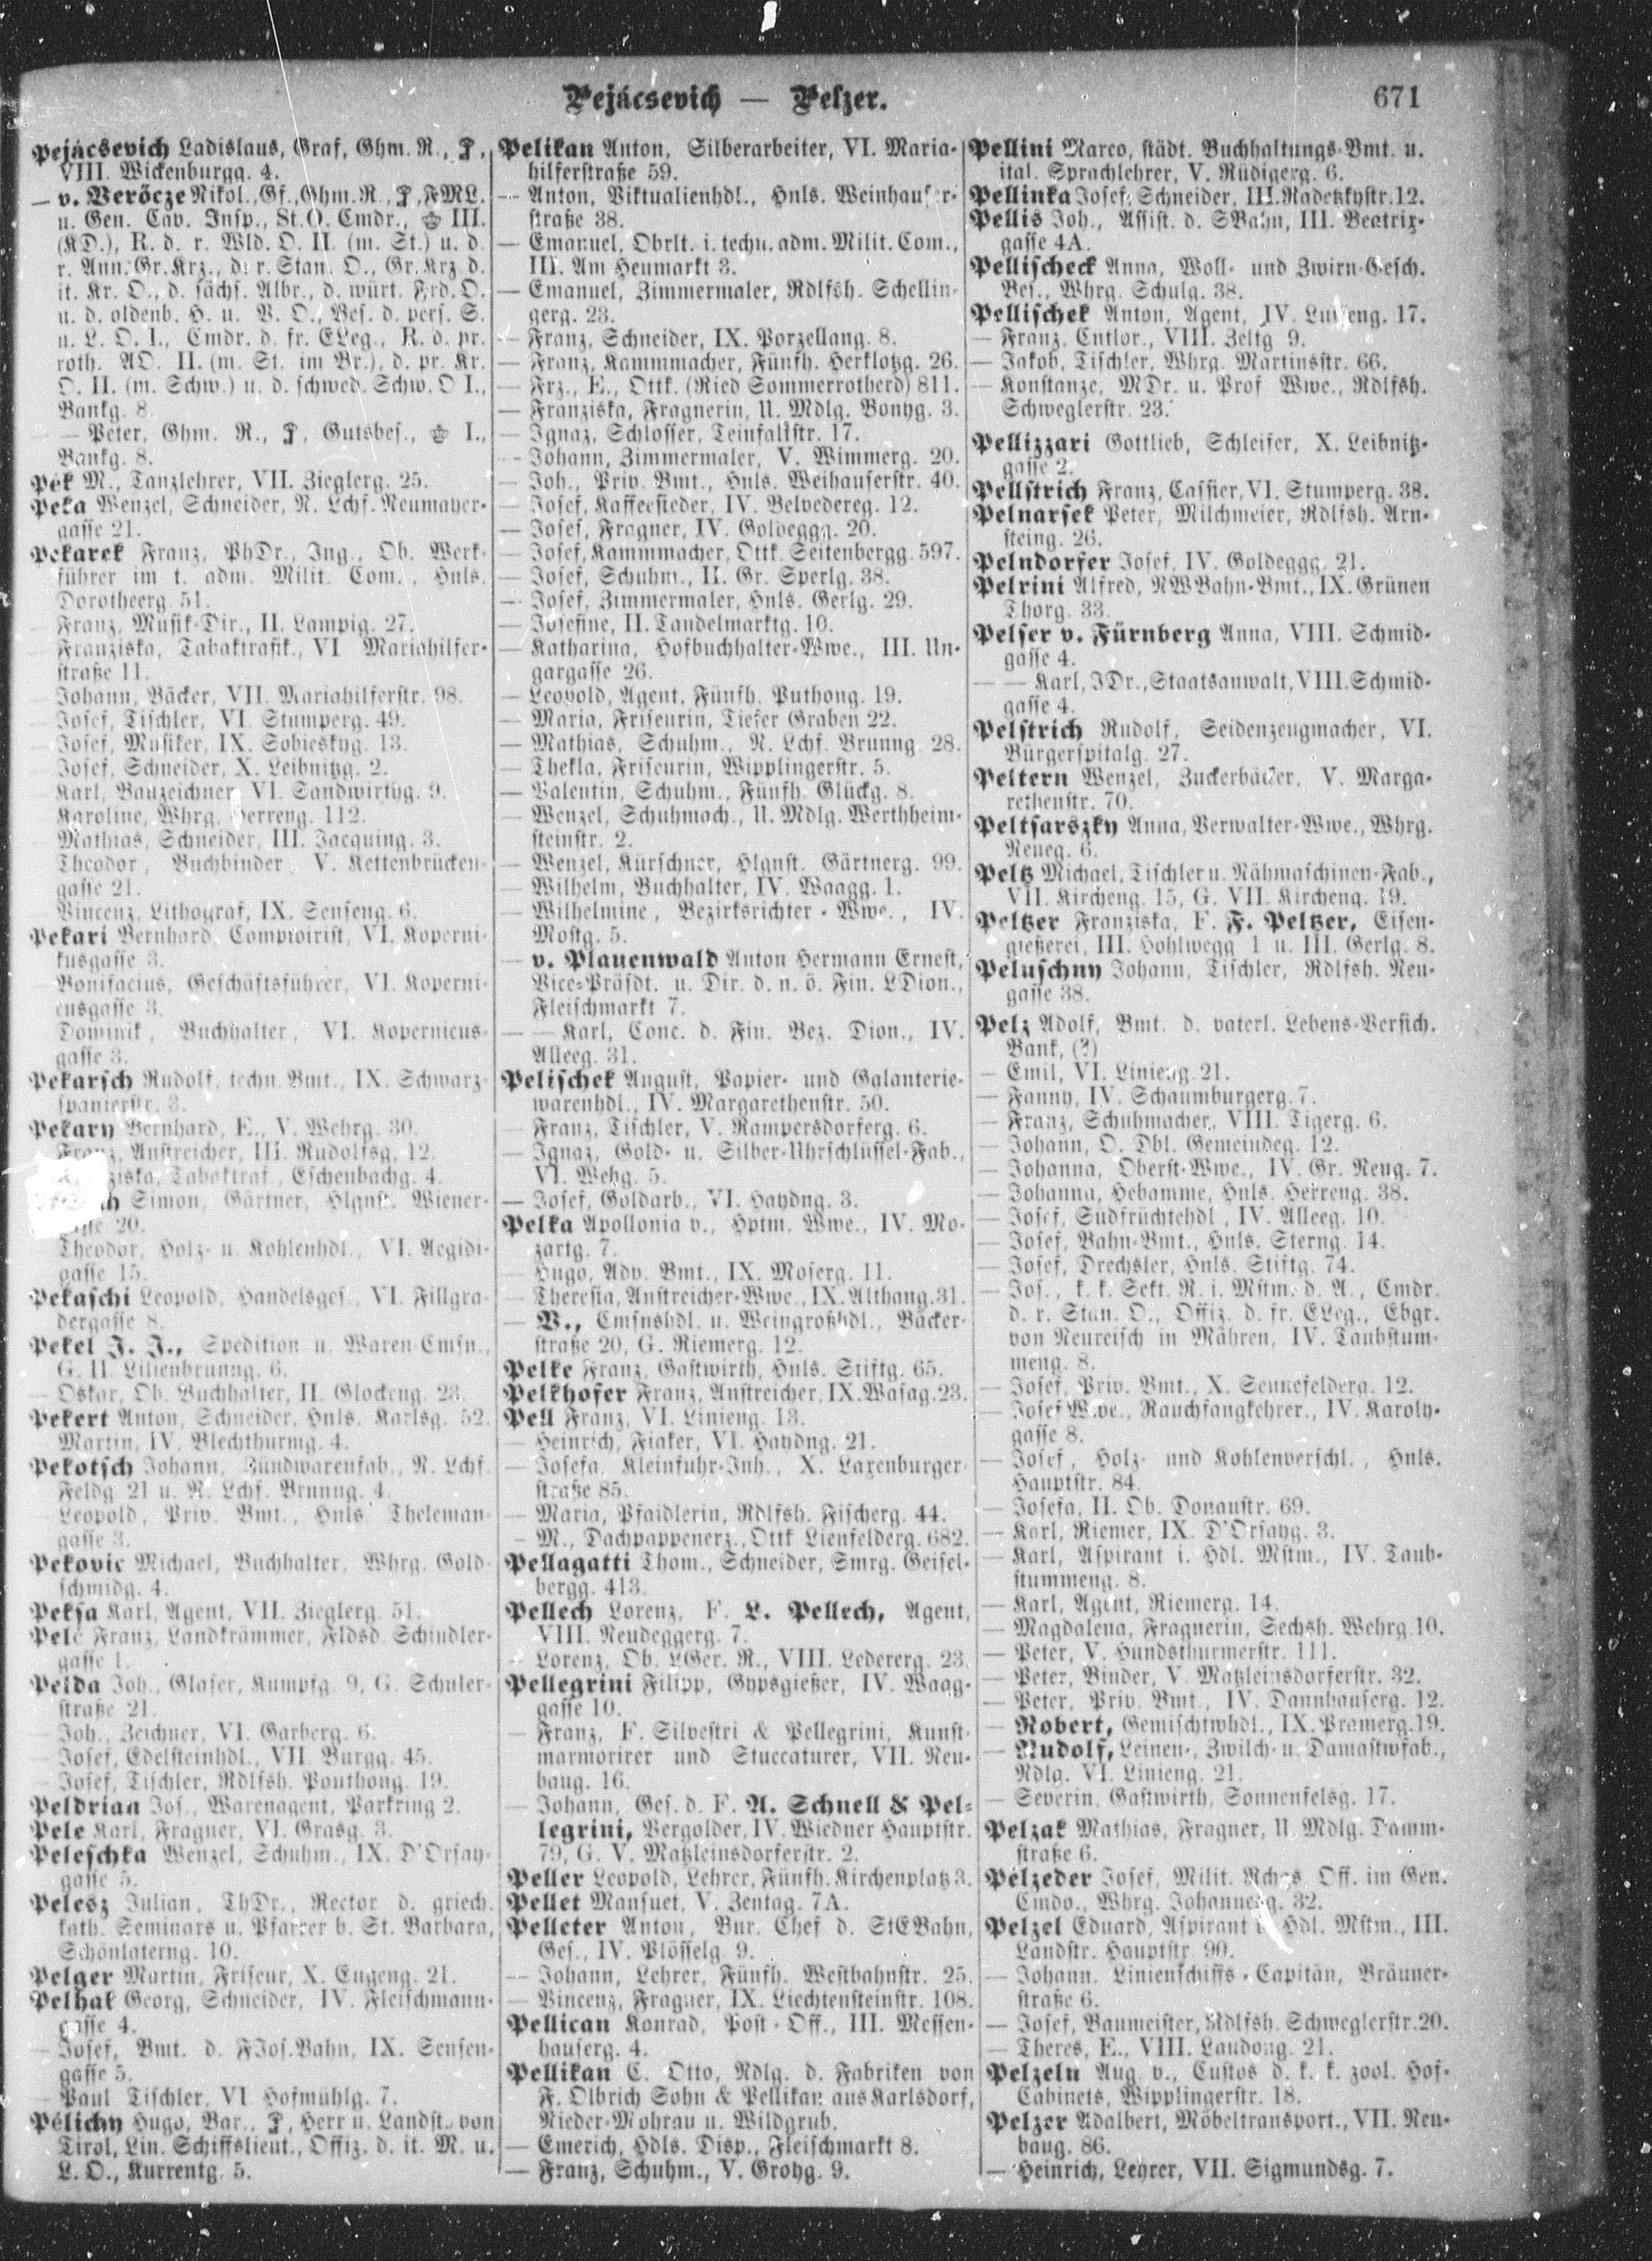 Pejácsevich — Pelzer.
671
Pejácsevich Ladislaus, Graf, Ghm. R.,
VIII. Wickenburgg. 4.
— v. Verőcze Nikol., Gf., Ghm. R., FML.
u. Gen. Cav. Insp., St. O. Cmdr., III.
(KD.), R. d. r. Wld. O. II. (m. St.) u. d.
r. Ann. Gr. Krz., d. r. Stan. O., Gr. Krz. d.
it. Kr. O., d. sächs. Albr., d. würt. Frd. O.
u. d. oldenb. H. u. V. O., Bes. d. pers. S.
u. L. O. I., Cmdr. d. fr. ELeg., R. d. pr.
roth. AO. II. (m. St. im Br.), d. pr. Kr.
O. II. (m. Schw.) u. d. schwed. Schw. O I.,
Bankg. 8.
— — Peter, Ghm. R., Gutsbes., I.,
Bankg. 8.
Pek M., Tanzlehrer, VII. Zieglerg. 25.
Peka Wenzel, Schneider, N. Lchf. Neumayer-
gasse 21.
Pekarek Franz, PhDr., Ing., Ob. Werk-
führer im t. adm. Milit. Com., Hnls.
Dorotheerg. 51.
— Franz, Musik-Dir., II. Lampig. 27.
— Franziska, Tabaktrafik., VI. Mariahilfer-
straße 11.
— Johann, Bäcker, VII. Mariahilferstr. 98.
— Josef, Tischler, VI. Stumperg. 49.
— Josef, Musiker, IX. Sobieskyg. 13.
— Josef, Schneider, X. Leibnitzg. 2.
— Karl, Bauzeichner, VI. Sandwirthg. 9.
— Karoline, Whrg. Herreng. 112.
— Mathias, Schneider, III. Jacquing. 3.
— Theodor, Buchbinder, V. Kettenbrücken-
gasse 21.
— Vincenz, Lithograf, IX. Senseng. 6.
Pekari Bernhard, Comptoirist, VI. Koperni-
kusgasse 3.
— Bonifacius, Geschäftsführer, VI. Koperni-
cusgasse 3.
— Dominik, Buchhalter, VI. Kopernicus-
gasse 3.
Pekarsch Rudolf, techn. Bmt., IX. Schwarz-
spanierstr. 3.
Pekary Bernhard, E., V. Wehrg. 30.
Franz, Anstreicher, III. Rudolfsg. 12.
Tabaktraf., Eschenbachg. 4.
Simon, Gärtner, Hlgnst. Wiener-
20.
Theodor, Holz- u. Kohlenhdl., VI. Aegidi-
gasse 15.
Pekaschi Leopold, Handelsges., VI. Fillgra-
dergasse 8.
Pekel J. J., Spedition u. Waren-Cmsn.,
G. II. Lilienbrunng. 6.
— Oskar, Ob. Buchhalter, II. Glockeng. 23.
Pekert Anton, Schneider, Hnls. Karlsg. 52.
— Martin, IV. Blechthurmg. 4.
Pekotsch Johann, Zündwarenfab., N. Lchf.
Feldg 21 u. N. Lchf. Brunng. 4.
— Leopold, Priv. Bmt., Hnls. Theleman-
gasse 3.
Pekovic Michael, Buchhalter, Whrg. Gold-
schmidg. 4.
Peksa Karl, Agent, VII. Zieglerg. 51.
Pelc Franz, Landkrämmer, Fldsd. Schindler-
gasse 1.
Pelda Joh., Glaser, Kumpfg. 9, G. Schuler-
straße 21.
— Joh., Zeichner, VI. Garberg. 6.
— Josef, Edelsteinhdl., VII. Burgg. 45.
— Josef, Tischler, Rdlfsh. Pouthong. 19.
Peldrian Jos., Warenagent, Parkring 2.
Pele Karl, Fragner, VI. Grasg. 3.
Peleschka Wenzel, Schuhm., IX. D'Orsay-
gasse 5.
Pelesz Julian, ThDr., Rector d. griech.
kath. Seminars u. Pfarrer b. St. Barbara,
Schönlaterng. 10.
Pelger Martin, Friseur, X. Eugeng. 21.
Pelhak Georg, Schneider, IV. Fleischmann-
gasse 4.
— Josef, Bmt. d. FJos.Bahn, IX. Sensen-
gasse 5.
— Paul Tischler, VI. Hofmühlg. 7.
Pelichy Hugo, Bar., Herr u. Landst. von
Tirol, Lin. Schiffslieut., Offiz. d. it. M. u.
L. O., Kurrentg. 5.
Pelikan Anton, Silberarbeiter, VI. Maria-
hilferstraße 59.
— Anton, Viktualienhdl., Hnls. Weinhauser-
straße 38.
— Emanuel, Obrlt. i. techn. adm. Milit. Com.,
III. Am Heumarkt 3.
— Emanuel, Zimmermaler, Rdlfsh. Schellin-
gerg. 23.
— Franz, Schneider, IX. Porzellang. 8.
— Franz, Kammmacher, Fünfh. Herklotzg. 26.
— Frz., E., Ottk. (Ried Sommerrotherd) 811.
— Franziska, Fragnerin, U. Mdlg. Bonyg. 3.
— Ignaz, Schlosser, Teinfaltstr. 17.
— Johann, Zimmermaler, V. Wimmerg. 20.
— Joh., Priv. Bmt., Hnls. Weihauserstr. 40.
— Josef, Kaffeesieder, IV. Belvedereg. 12.
— Josef, Fragner, IV. Goldeggg. 20.
— Josef, Kammmacher, Ottk. Seitenbergg. 597.
— Josef, Schuhm., II. Gr. Sperlg. 38.
— Josef, Zimmermaler, Hnls. Gerlg. 29.
— Josefine, II. Tandelmarktg. 10.
— Katharina, Hofbuchhalter-Wwe., III. Un-
gargasse 26.
— Leopold, Agent, Fünfh. Puthong. 19.
— Maria, Friseurin, Tiefer Graben 22.
— Mathias, Schuhm., N. Lchf. Brunng. 28.
— Thekla, Friseurin, Wipplingerstr. 5.
— Valentin, Schuhm., Fünfh. Glückg. 8.
— Wenzel, Schuhmach., U. Mdlg. Werthheim-
steinstr. 2.
— Wenzel, Kürschner, Hlgnst. Gärtnerg. 99.
— Wilhelm, Buchhalter, IV. Waagg. 1.
— Wilhelmine, Bezirksrichter-Wwe., IV.
Mostg. 5.
— v. Plauenwald Anton Hermann Ernest,
Vice-Präsdt. u. Dir. d. n. ö. Fin. LDion.,
Fleischmarkt 7.
— — Karl, Conc. d. Fin. Bez. Dion., IV.
Alleeg. 31.
Pelischek August, Papier- und Galanterie-
warenhdl., IV. Margarethenstr. 50.
— Franz, Tischler, V. Rampersdorferg. 6.
— Ignaz, Gold- u. Silber-Uhrschlüssel-Fab.,
VI. Wehg. 5.
— Josef, Goldarb., VI. Haydng. 3.
Pelka Apollonia v., Hptm. Wwe., IV. Mo-
zartg. 7.
— Hugo, Adv. Bmt., IX. Moserg. 11.
— Theresia, Anstreicher-Wwe., IX. Althang. 31.
— V., Cmsnshdl. u. Weingroßhdl., Bäcker-
straße 20, G. Riemerg. 12.
Pelke Franz, Gastwirth, Hnls. Stiftg. 65.
Pelkhofer Franz, Anstreicher, IX. Wasag. 23.
Pell Franz, VI. Linieng. 13.
— Heinrich, Fiaker, VI. Haydng. 21.
— Josefa, Kleinfuhr-Inh., X. Laxenburger-
straße 85.
— Maria, Pfaidlerin, Rdlfsh. Fischerg. 44.
— M., Dachpappenerz., Ottk. Lienfelderg. 682.
Pellagatti Thom., Schneider, Smrg. Geisel-
bergg. 413.
Pellech Lorenz, F. L. Pellech, Agent,
VIII. Neudeggerg. 7.
— Lorenz, Ob. LGer. R., VIII. Ledererg. 23.
Pellegrini Filipp, Gypsgießer, IV. Waag-
gasse 10.
— Franz, F. Silvestri & Pellegrini, Kunst-
marmorirer und Stuccaturer, VII. Neu-
baug. 16.
— Johann, Ges. d. F. A. Schnell & Pel-
legrini, Vergolder, IV. Wiedner Hauptstr.
79, G. V. Matzleinsdorferstr. 2.
Peller Leopold, Lehrer, Fünfh. Kirchenplatz 3.
Pellet Mansuet, V. Zentag. 7A.
Pelleter Anton, Bur. Chef d. StEBahn,
Ges., IV. Plösselg. 9.
— Johann, Lehrer, Fünfh. Westbahnstr. 25.
— Vincenz, Fragner, IX. Liechtensteinstr. 108.
Pellican Konrad, Post-Off., III. Messen-
hauserg. 4.
Pellikan C. Otto, Ndlg. d. Fabriken von
F. Olbrich Sohn & Pellikan aus Karlsdorf,
Nieder-Mohrau u. Wildgrub.
— Emerich, Hdls. Disp., Fleischmarkt 8.
— Franz, Schuhm., V. Grohg. 9.
Pellini Marco, städt. Buchhaltungs-Bmt. u.
ital. Sprachlehrer, V. Rüdigerg. 6.
Pellinka Josef, Schneider, III. Radetzkystr. 12.
Pellis Joh., Assist. d. SBahn, III. Beatrix-
gasse 4A.
Pellischeck Anna, Woll- und Zwirn-Gesch.
Bes., Whrg. Schulg. 38.
Pellischek Anton, Agent, IV. Luiseng. 17.
— Franz, Cutler, VIII. Zeltg 9.
— Jakob, Tischler, Whrg. Martinsstr. 66.
— Konstanze, MDr. u. Prof Wwe., Rdlfsh.
Schweglerstr. 23.
Pellizzari Gottlieb, Schleifer, X. Leibnitz-
gasse 2.
Pellstrich Franz, Cassier, VI. Stumperg. 38.
Pelnarsek Peter, Milchmeier, Rdlfsh. Arn-
steing. 26.
Pelndorfer Josef, IV. Goldeggg. 21.
Pelrini Alfred, NWBahn-Bmt., IX. Grünen
Thorg. 33.
Pelser v. Fürnberg Anna, VIII. Schmid-
gasse 4.
— — Karl, JDr., Staatsanwalt, VIII. Schmid-
gasse 4.
Pelstrich Rudolf, Seidenzeugmacher, VI.
Bürgerspitalg. 27.
Peltern Wenzel, Zuckerbäcker, V. Marga-
rethenstr. 70.
Peltsarszky Anna, Verwalter-Wwe., Whrg.
Neueg. 6.
Peltz Michael, Tischler u. Nähmaschinen-Fab.,
VII. Kircheng. 15, G. VII. Kircheng. 19.
Peltzer Franziska, F. F. Peltzer, Eisen-
gießerei, III. Hohlwegg 1 u. III. Gerlg. 8.
Peluschny Johann, Tischler, Rdlfsh. Neu-
gasse 38.
Pelz Adolf, Bmt. d. vaterl. Lebens-Versich.
Bank, (?)
— Emil, VI. Linieng. 21.
— Fanny, IV. Schaumburgerg. 7.
— Franz, Schuhmacher, VIII. Tigerg. 6.
— Johann, O. Dbl. Gemeindeg. 12.
— Johanna, Oberst-Wwe., IV. Gr. Neug. 7.
— Johanna, Hebamme, Hnls. Herreng. 38.
— Josef, Südfrüchtehdl., IV. Alleeg. 10.
— Josef, Bahn-Bmt., Hnls. Sterng. 14.
— Josef, Drechsler, Hnls. Stiftg. 74.
— Jos., k. k. Sekt. R. i. Mstm. d. A., Cmdr.
d. r. Stan. O., Offiz. d. fr. ELeg., Ebgr.
von Neureisch in Mähren, IV. Taubstum-
meng. 8.
— Josef, Priv. Bmt., X. Sennefelderg. 12.
— Josef Wwe., Rauchfangkehrer., IV. Karoly-
gasse 8.
— Josef, Holz- und Kohlenverschl., Hnls.
Hauptstr. 84.
— Josefa, II. Ob. Donaustr. 69.
— Karl, Riemer, IX. D'Orsayg. 3.
— Karl, Aspirant i. Hdl. Mstm., IV. Taub-
stummeng. 8.
— Karl, Agent, Riemerg. 14.
— Magdalena, Fragnerin, Sechsh. Wehrg. 10.
— Peter, V. Hundsthurmerstr. 111.
— Peter, Binder, V. Matzleinsdorferstr. 32.
— Peter, Priv. Bmt., IV. Dannhauserg. 12.
— Robert, Gemischtwhdl., IX. Pramerg. 19.
— Rudolf, Leinen-, Zwilch- u. Damastwfab.,
Ndlg. VI. Linieng. 21.
— Severin, Gastwirth, Sonnenfelsg. 17.
Pelzak Mathias, Fragner, U. Mdlg. Damm-
straße 6.
Pelzeder Josef, Milit. Rchgs. Off. im Gen.
Cmdo., Whrg. Johannesg. 32.
Pelzel Eduard, Aspirant i. Hdl. Mstm., III.
Landstr. Hauptstr. 90.
— Johann, Linienschiffs-Capitän, Bräuner-
straße 6.
— Josef, Baumeister, Rdlfsh. Schweglerstr. 20.
— Theres, E., VIII. Laudong. 21.
Pelzeln Aug. v., Custos d. k. k. zool. Hof-
Cabinets, Wipplingerstr. 18.
Pelzer Adalbert, Möbeltransport., VII. Neu-
baug. 86.
— Heinrich, Lehrer, VII. Sigmundsg. 7.